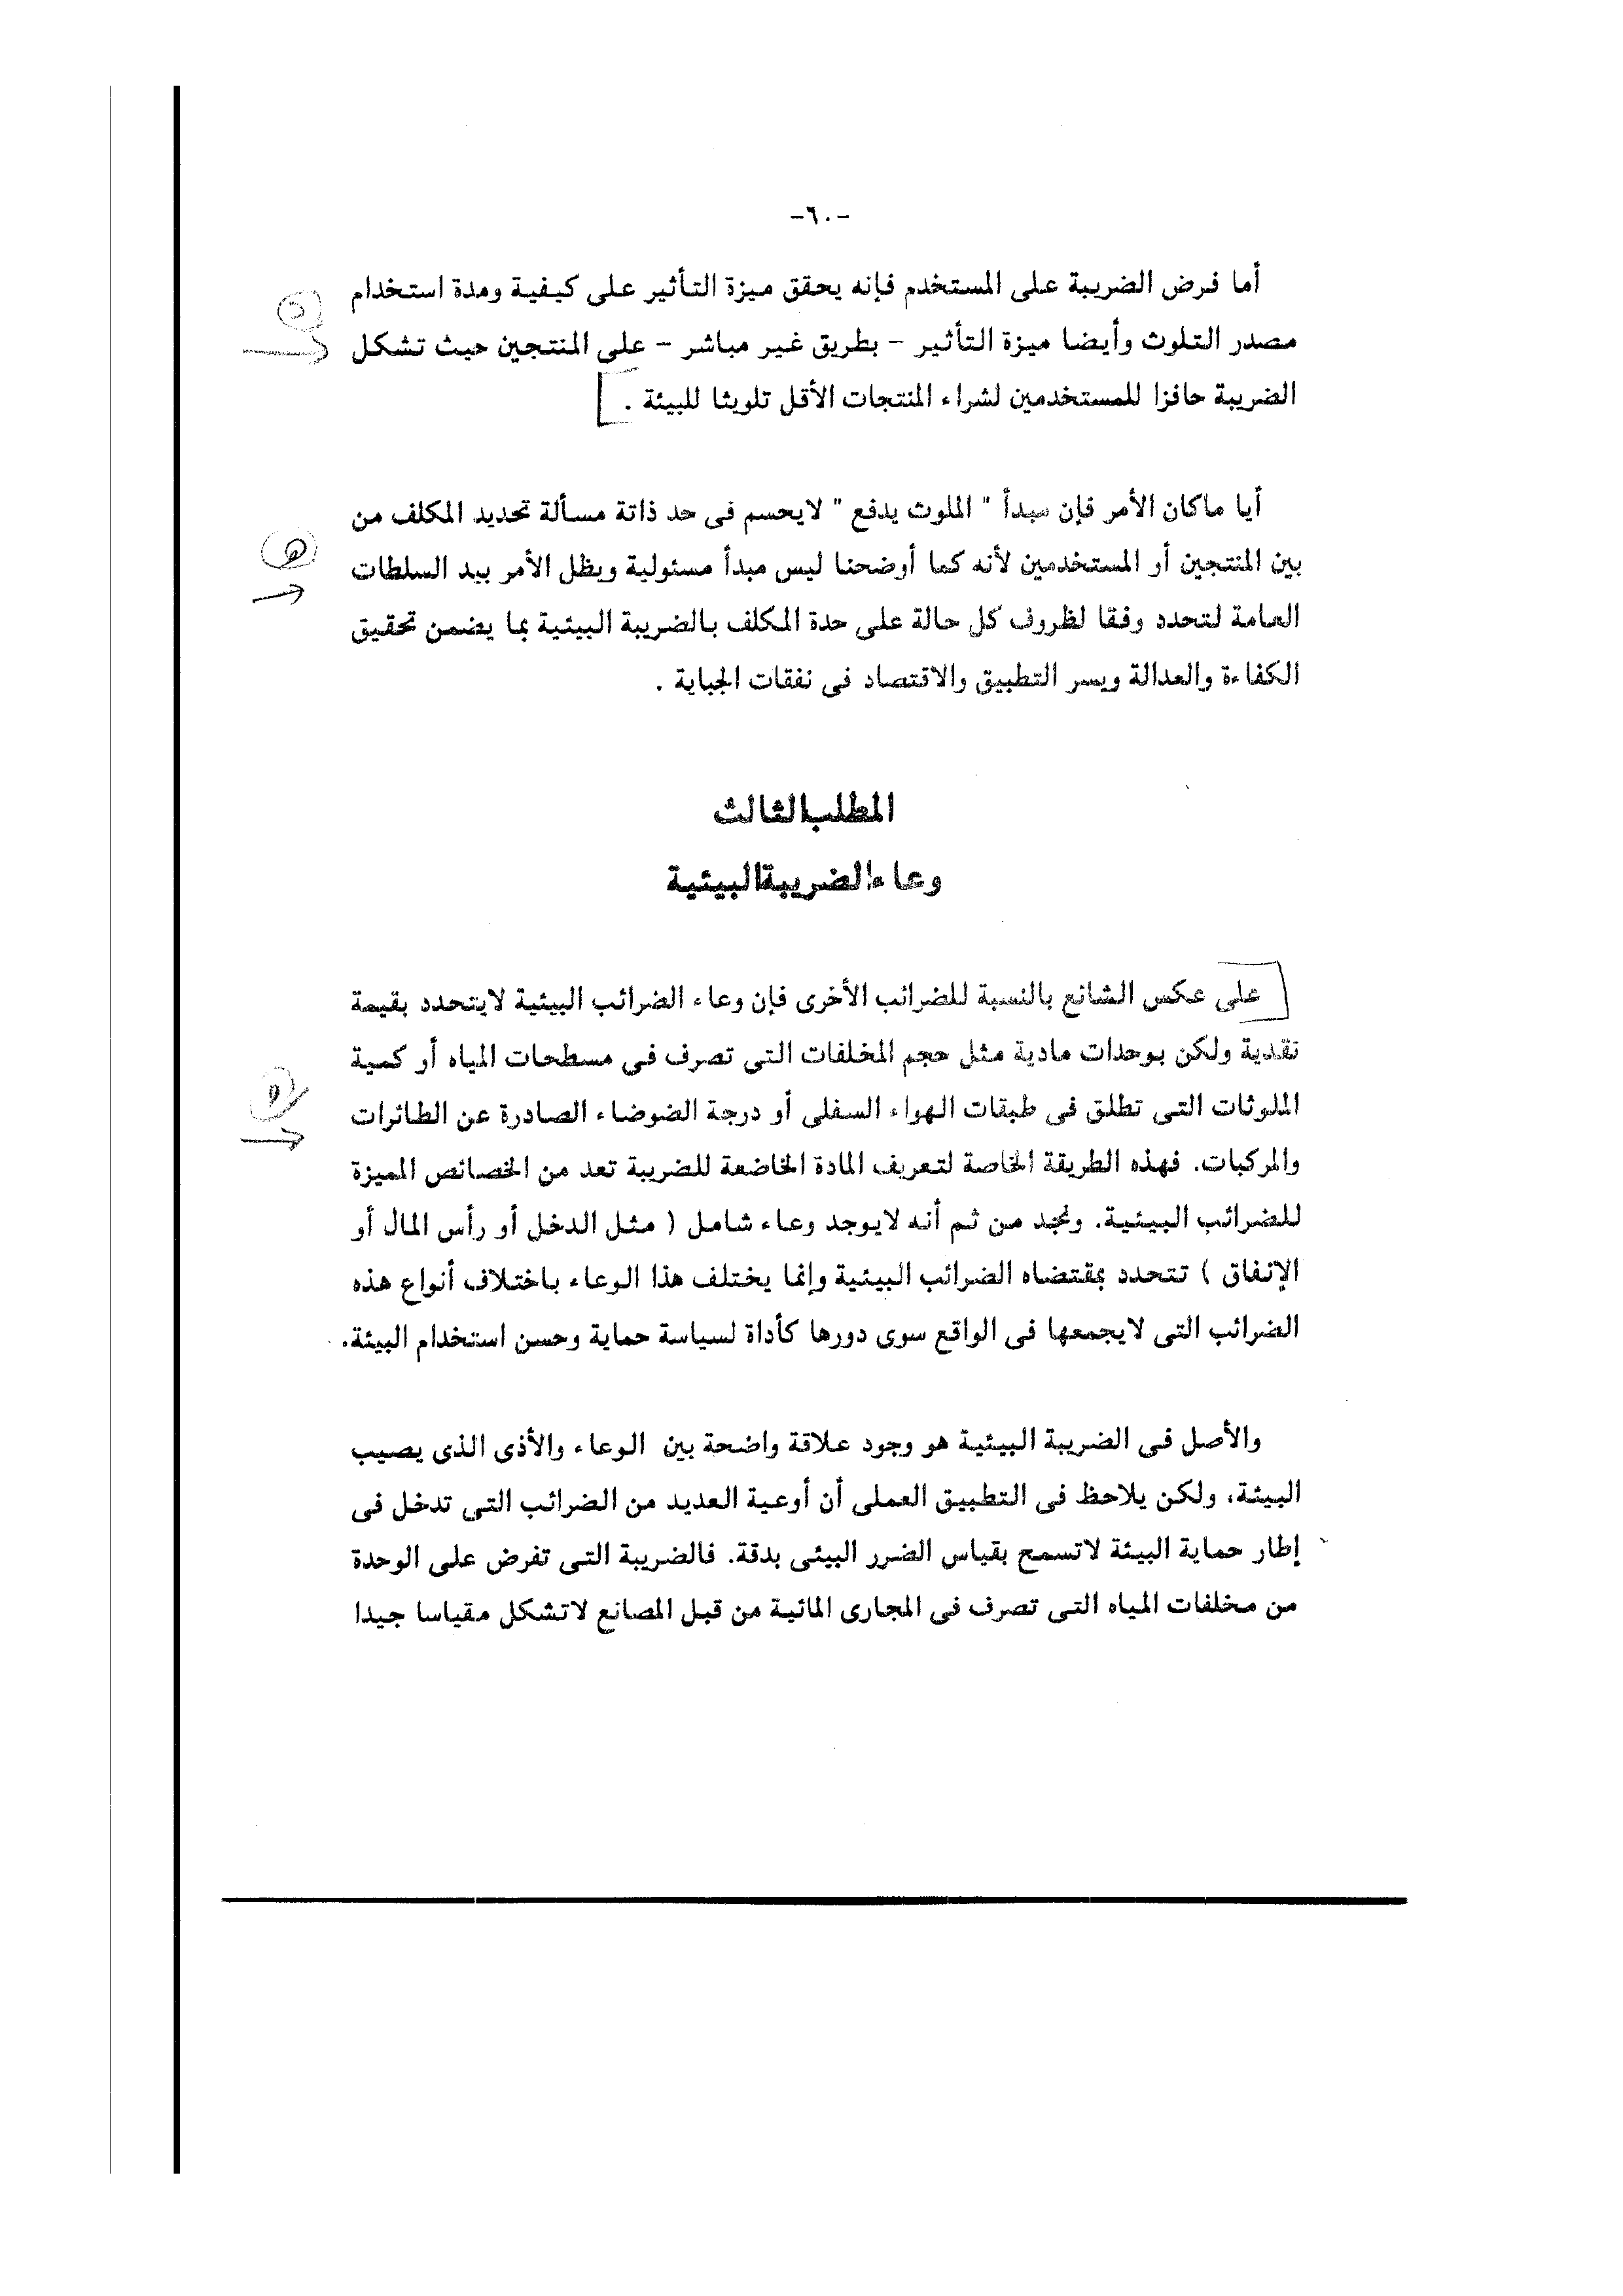 -٦٠-
أما فرض الضريبة على المستخدم فإنه يحقق ميزة التأثير على كيفية ومدة استخدام
مصدر التلوث وأيضا ميزة التأثير - بطريق غير مباشر - على المنتجين حيث تشكل
الضريبة حافزا للمستخدمين لشراء المنتجات الأقل تلويثا للبيئة .
أيا ماكان الأمر فإن مبدأ " الملوث يدفع " لايحسم فى حد ذاتة مسألة تحديد المكلف من
بين المنتجين أو المستخدمين لأنه كما أوضحنا ليس مبدأ مسئولية ويظل الأمر بيد السلطات
العامة لتحدد وفقا لظروف كل حالة على حدة المكلف بالضريبة البيئية بما يضمن تحقيق
الكفاءة والعدالة ويسر التطبيق والاقتصاد فى نفقات الجباية .
المطلب الثالث
وعاء الضريبة البيئية
على عكس الشائع بالنسبة للضرائب الأخرى فإن وعاء الضرائب البيئية لايتحدد بقيمة
نقدية ولكن بوحدات مادية مثل حجم المخلفات التى تصرف فى مسطحات المياه أو كمية
الملوثات التى تطلق فى طبقات الهواء السفلى أو درجة الضوضاء الصادرة عن الطائرات
والمركبات. فهذه الطريقة الخاصة لتعريف المادة الخاضعة للضريبة تعد من الخصائص المميزة
للضرائب البيئية. ونجد من ثم أنه لايوجد وعاء شامل ( مثل الدخل أو رأس المال أو
الإنفاق ) تتحدد بمقتضاه الضرائب البيئية وإنما يختلف هذا الوعاء باختلاف أنواع هذه
الضرائب التى لايجمعها فى الواقع سوى دورها كأداة لسياسة حماية وحسن استخدام البيئة.
والأصل فى الضريبة البيئية هو وجود علاقة واضحة بين الوعاء والأذى الذى يصيب
البيئة، ولكن يلاحظ فى التطبيق العملى أن أوعية العديد من الضرائب التى تدخل فى
إطار حماية البيئة لاتسمح بقياس الضرر البيئى بدقة. فالضريبة التى تفرض على الوحدة
من مخلفات المياه التى تصرف فى المجارى المائية من قبل المصانع لاتشكل مقياسا جيدا